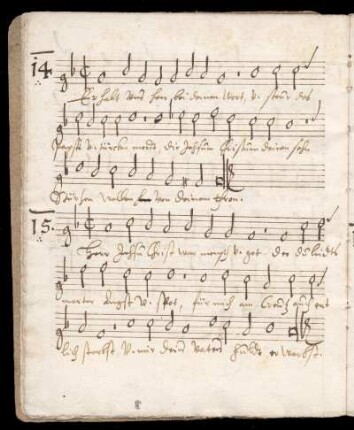 14.
Erhalt uns her bei deinem Wort, v. steur des
Papsts v. türcken mordt, die Jhesum Christum deinen sohn
Stürtzen wollen von deinem thron.
15.
Herr Jhesu Christ war mensch v. got der du lidts
marter angst v. spot, für mich am Creutz auch ent
lich starbst v. mir deins vaters huldt erwarbst.